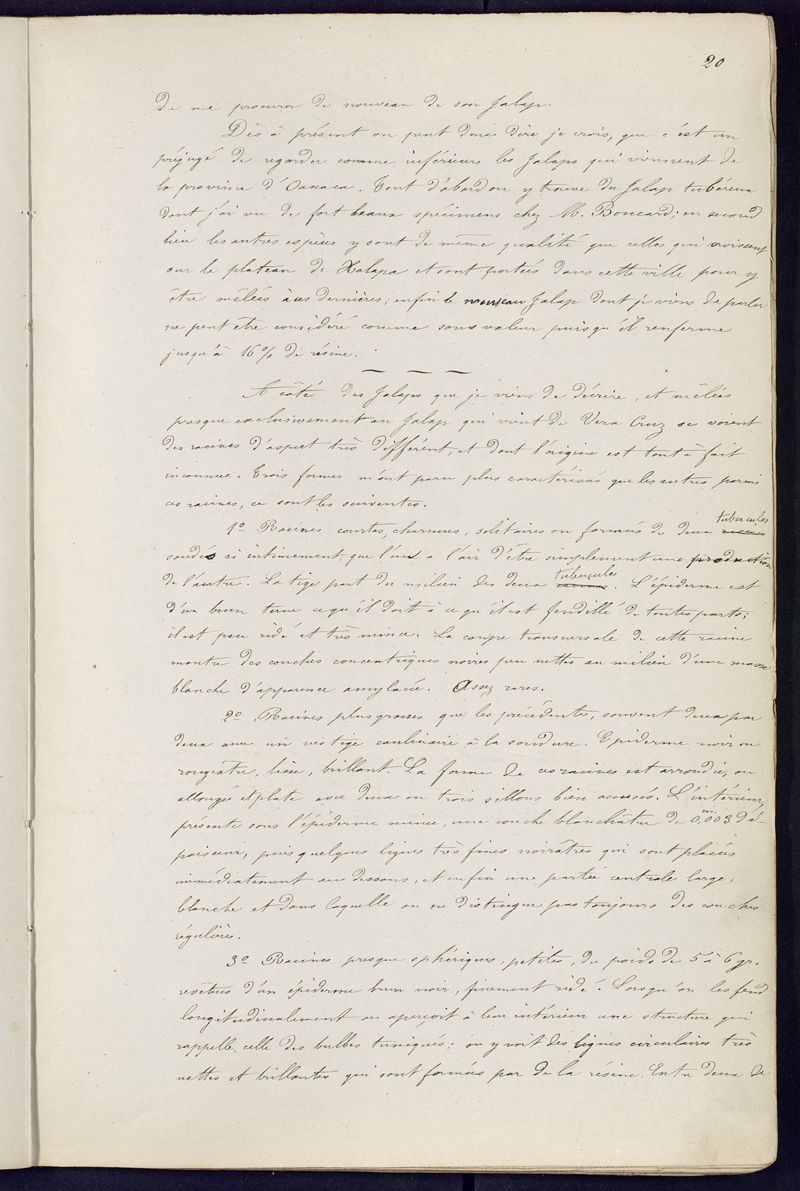 20
de me procurer de nouveau de son Jalap.
Dès à présent on peut donc dire je crois, que c'est un
préjugé de regarder comme inférieurs les Jalaps qui viennent de
la province d'Oaxaca. Tout d'abord on y trouve du Jalap tubéreux
dont j'ai vu de fort beaux spécimens chez M. Boucard; en second
lieu les autres espèces y sont de même qualité que celles qui croissent
sur le plateau de Xalapa et sont portées dans cette ville pour y
être mêlées à ces dernières; enfin le nouveau Jalap dont je viens de parler
ne peut être considéré comme sans valeur puisqu'il renferme
jusqu'à 16% de résine.
A côté des Jalaps que je viens de décrire, et mêlées
presque exclusivement au Jalap qui vient de Vera Cruz se voient
des racines d'aspect très différent, et dont l'origine est tout à fait
inconnue. Trois formes m'ont paru plus caractérisées que les autres parmi
ces racines, ce sont les suivantes.
1º Racines courtes, charnues, solitaires ou formées de deux tubercules
soudés si intimement, que l'un a l'air d'être simplement une production
de l'autre. La tige part du milieu des deux tubercules. L'épiderme est
d'un brun terne ce qu'il doit à ce qu'il est fendillé de toutes parts;
il est peu ridé et très mince. La coupe transversale de cette racine
montre des couches concentriques noires peu nettes au milieu d'une masse
blanche d'apparence amylacée. Assez rares.
2º Racines plus grosses que les précédentes, souvent deux par
deux avec un vestige caulinaire à la soudure. Epiderme noir ou
rougeâtre, lisse, brillant. La forme de ces racines est arrondie, ou
allongée et plate avec deux ou trois sillons bien accusés. L'intérieur,
présente sous l'épiderme mince, une couche blanchâtre de 0,m003 d'é-
paisseur, puis quelques lignes très fines noirâtres qui sont placées
immédiatement au dessous, et enfin une partie centrale large,
blanche et dans laquelle on ne distingue pas toujours des couches
régulières.
3º Racines presque sphériques, petites, du poids de 5 à 6 gr.
revêtues d'un épiderme brun noir, finement ridé. Lorsqu'on les fend
longitudinalement on aperçoit à leur intérieur une structure qui
rappelle celle des bulbes tuniqués; on y voit des lignes circulaires très
nettes et brillantes qui sont formées par de la résine. Entre deux de